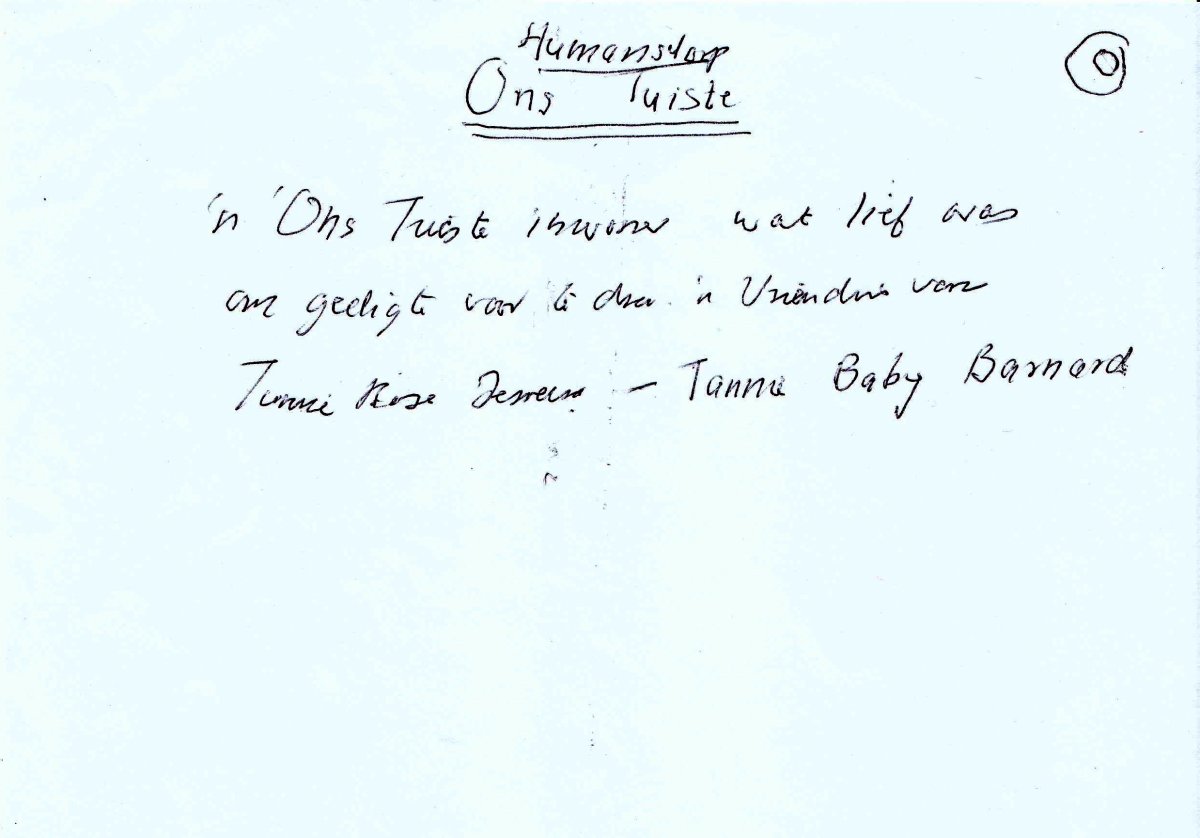 Humansdorp
Ons Tuiste
'n 'Ons Tuiste inwoner wat lief was
om gedigte voor te dra. 'n Vriendin van
Tannie - Tannie Baby Barnard